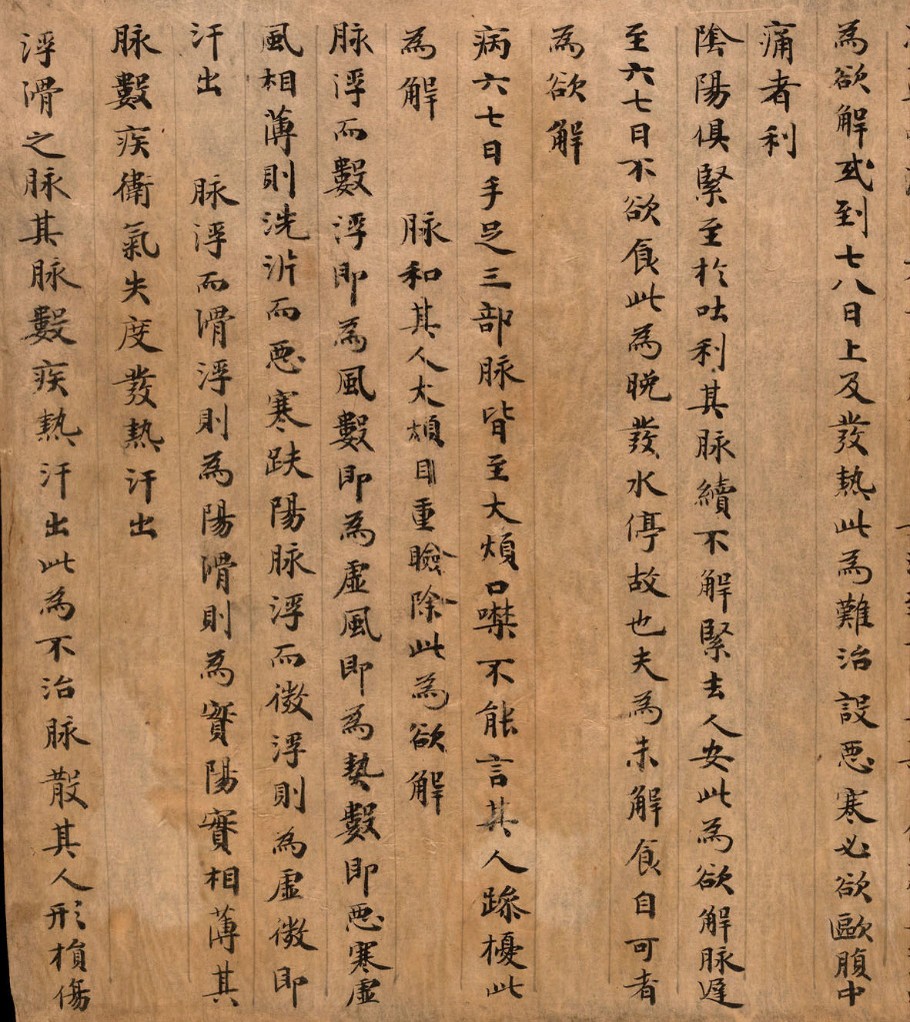 為欲解或到七八日上及發熱此為難治設惡寒必欲歐腹中
痛者利
陰陽俱緊至於吐利其脉續不解緊去人安此為欲解脉遲
至六七日不欲食此為晚發水停故也夫為未解食自可者
為欲解
病六七日手足三部脉皆至大煩口噤不能言其人躁擾此
為解　　脉和其人大煩目重瞼除此為欲解
脉浮而數浮即為風數即為虛風即為𤍠數即惡寒虛
風相薄則洗泝而惡寒趺陽脉浮而微浮則為虛微即
汗出　　脉浮而滑浮則為陽滑則為實陽實相薄其
脉數疾衛氣失度發熱汗出
浮滑之脉其脉數疾熱汗出此為不治脉散其人形損傷